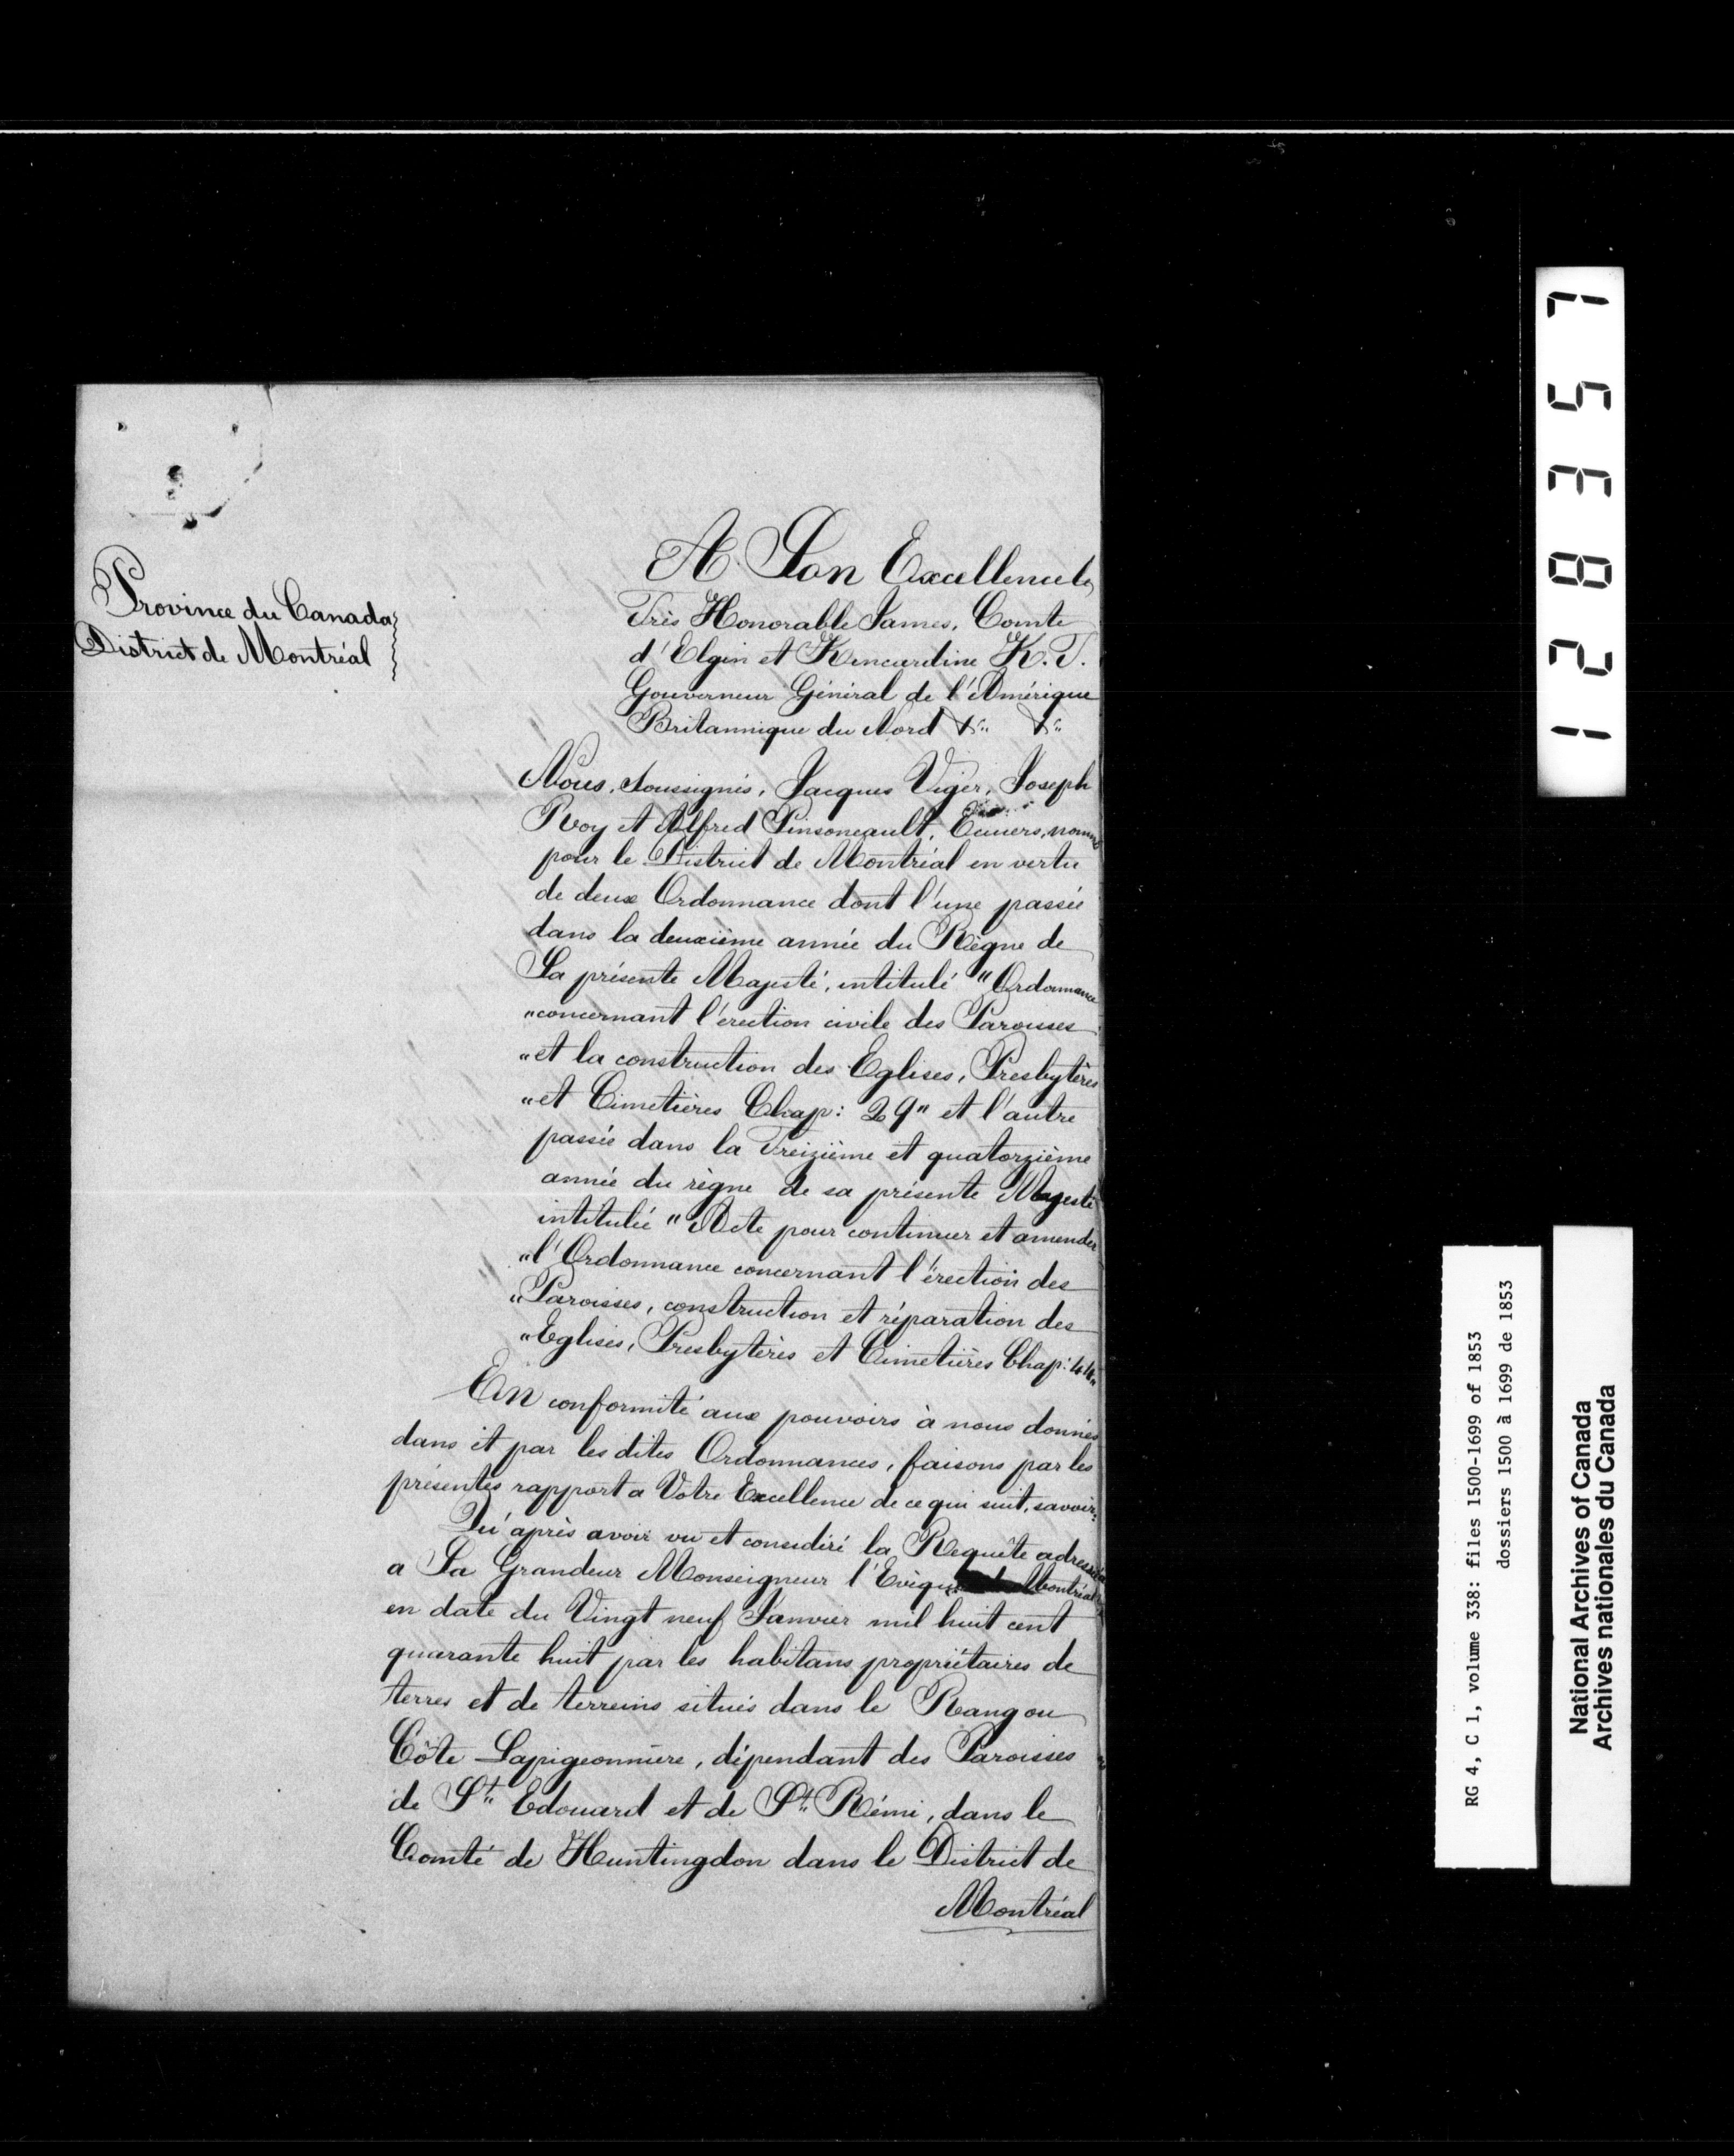 Province du Canada
District de Montréal
A Son Excellence le
Très Honorable James, Comte
d'Elgin et Kincardine K.T.
Gouverneur Général de l'Amérique
Britannique du Nord &c. &c.
Nous, Soussignés, Jacques Viger, Joseph
Roy et Alfred Pinsoneault, Ecuiers, nommés
pour le District de Montréal en vertu
de deux Ordonnance dont l'une passée
dans la deuxième année du Règne de
Sa présente Majesté, intitulé "Ordonnance
"concernant l'érection civile des Paroisses
"et la construction des Eglises, Presbytères
"et Cimetières Chap: 29" et l'autre
passée dans la Treizième et quatorzième
année du règne de sa présente Majesté
intitulée "Acte pour continuer et amender
"l'Ordonnance concernant l'érection des
"Paroisses, construction et réparation des
"Eglises, Presbytères et Cimetières Chap: 44"
En conformité aux pouvoirs à nous donnés
dans et par les dites Ordonnances, faisons par les
présentes rapport a Votre Excellence de ce qui suit, savoir:
Qu'après avoir vu et considéré la Requête adressée
a Sa Grandeur Monseigneur l'Evêque de Montréal
en date du Vingt neuf Janvier mil huit cent
quarante huit par les habitans propriétaires de
terres et de terreins situés dans le Rang ou
Côte Lapigeonnière, dépendant des Paroisses
de St. Edouard et de St. Rémi, dans le
Comté de Huntingdon dans le District de
Montréal
128357
RG 4, C 1, volume 338: files 1500-1699 of 1853
dossiers 1500 à 1699 de 1853
National Archives of Canada
Archives nationales du Canada